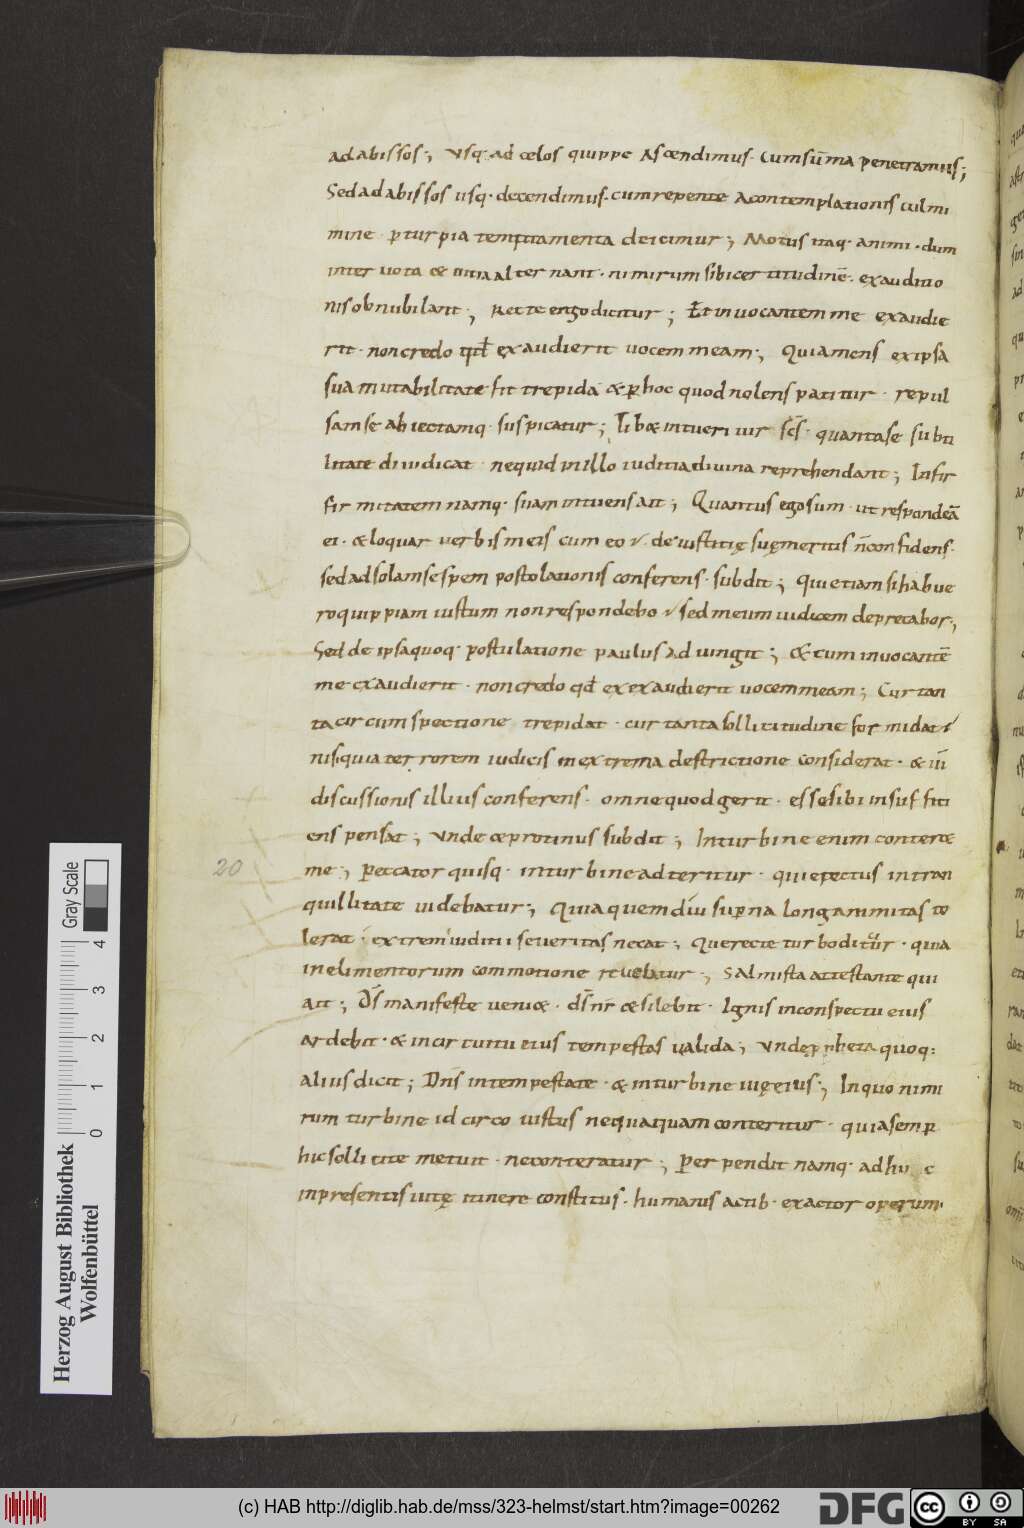 ad abissos; Vsq· ad celos quippe Ascendimus· Cum sūma penetramus;
Sed ad abissos usq· decendimus· cum repente A contemplationis culmi
mine per turpia temptamenta deicimur; Motus itaq· animi· dum
inter uota & uitia alternant· nimirum sibi certitudinē· exauditio
nis obnubilant; Recte ergo dicitur; Et inuocantem me exaudie
rit· non credo qđ exaudierit uocem meam; Quia mens ex ipsa
sua mutabilitate fit trepida & ꝑ hoc quod nolens patitur· repul
sam se abiectamq· suspicatur; Libæ intueri uir sc̄s· quanta se subti
litate diiudicat· ne quid in illo iuditia diuina reprehendant; Infir
fir mitatem namq· suam intuens ait; Quantus ego sum· ut respondeā
ei· & loquar uerbis meis cum eo· de iustitię suę meritis n̄ confidens·
sed ad solam se spem postolationis conferens· subdit; Qui etiam si habue
ro quippiam iustum non respondebo· sed meum iudicem deprecabor;
Sed de ipsa quoq· postulatione paulus adiungit; & cum inuocantē
me exaudierit· non credo qđ exexaudierit uocem meam; Cur tan
ta circumspectione trepidat· cur tanta sollicitudine formidat
nisi quia terrorem iudicis in extrema destrictione considerat· & uī
discussionis illius conferens· omne quod gerit· esse sibi insuffiti
ens pensat; Vnde & protinus subdit; In turbine enim conteret
me; Peccator quisq· in turbine adteritur· qui erectus in tran
quillitate uidebatur; Quia quem diu suꝑna longanimitas to
lerat· extremi iuditii seueritas necat; Que recte turbo dicitur· quia
in elimentorum commotione reuelatur; Salmista attestante qui
ait; Ds̄ manifeste ueniæ· ds̄ nr̄ & silebit· Ignis in conspectu eius
ardebit· & in circuitu eius tempestas ualida; Vnde ꝓpheta quoq:
alius dicit; Dn̄s in tempestate· & in turbine uię eius; In quo nimi
rum turbine idcirco iustus nequaquam conteritur· quia semꝑ
hic sollicite metuit· ne conteratur; Perpendit namq· adhu c
in presentis uitę itinere constitus· humanis actib· exactor operum·
20
Herzog August Bibliothek
Wolfenbüttel
Gray Scale
0 1 2 3 4
(c) HAB http://diglib.hab.de/mss/323-helmst/start.htm?image=00262
DFG
CC BY SA